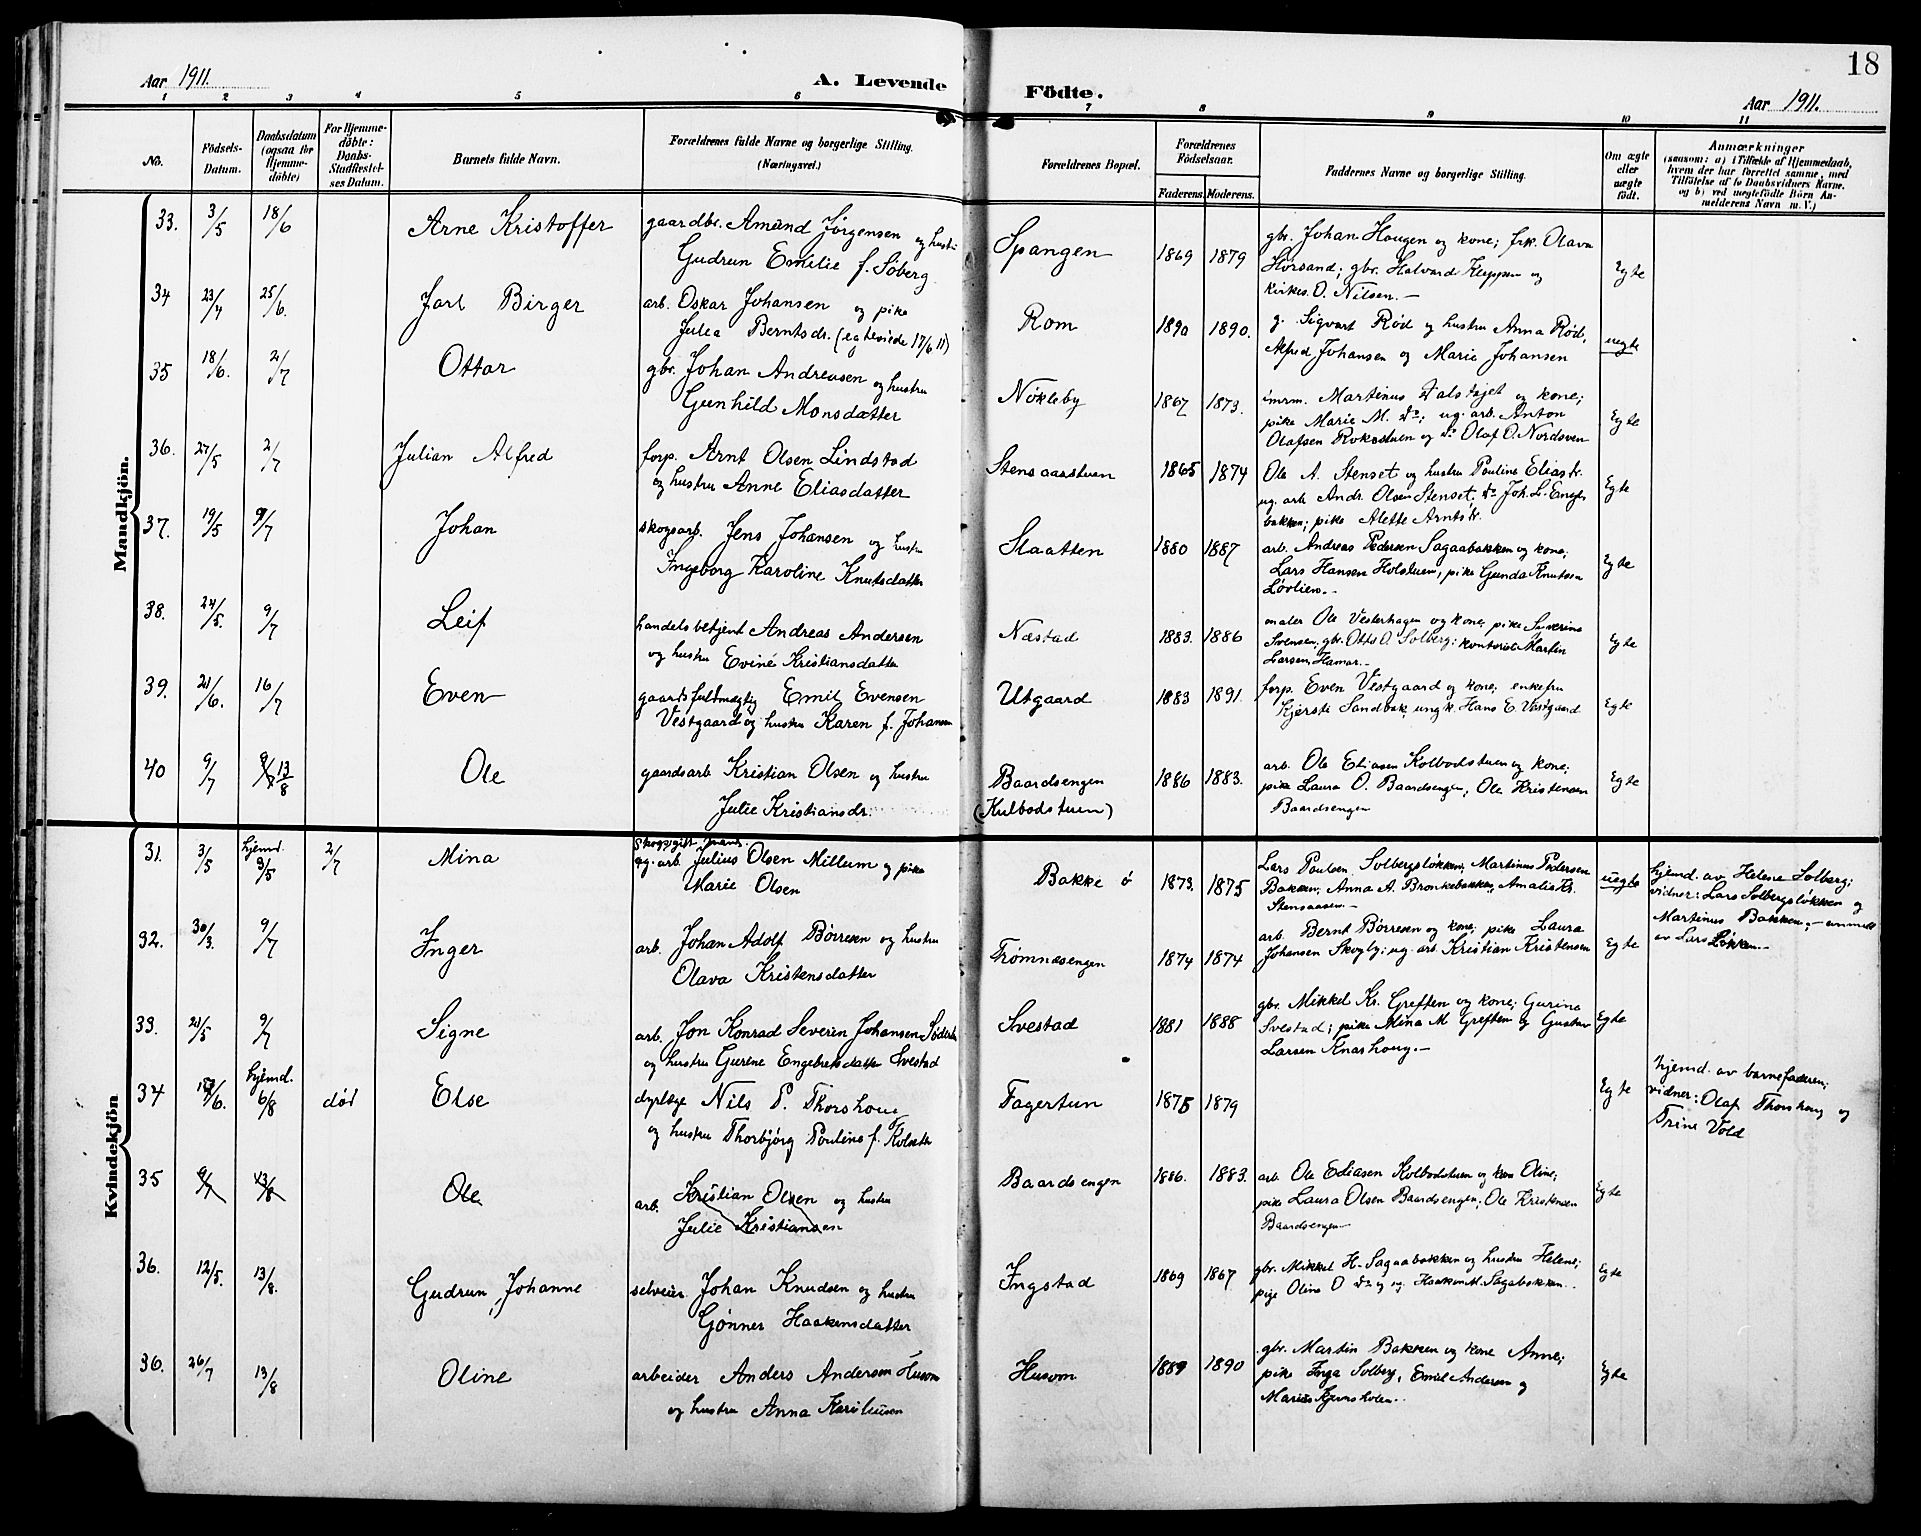 18
Aar 1911.
A. Levende Födte.
Aar 1911.
1 2 3 4 5 6 7 8 9 10 11
No.
Födsels-Datum.
Daabsdatum (ogsaa for Hjemme-döbte)
For Hjemme-döbte: Daabs-Stadfæstel-ses Datum.
Barnets fulde Navn.
Forældrenes fulde Navne og borgerlige Stilling. (Næringsvei.)
Forældrenes Bopæl.
Forældrenes Fødselsaar.
Faderens. Moderens.
Faddernes Navne og borgerlige Stilling.
Om ægte eller uægte født.
Anmærkninger
(saasom: a) i Tilfælde af Hjemmedaab, hvem der har forrettet samme, med Tilföielse af to Daabsvidners Navne, og b) ved uegtefödte Börn An-melderens Navn m. V.)
Mandkjön.
33. 3/5 18/6 Arne Kristoffer
gaardbr. Amund Jørgensen og hustru
Gudrun Emilie f. Søberg
Spangen 1869 1879
gbr. Johan Haugen og kone; frk. Olava
Horsand; gbr. Halvard Kleppen og
kirkes. O. Nilsen.—
Egte
34 23/4 25/6. Jarl Birger
arb. Oskar Johansen og pike
Julia Berntsdr. (egteviede 17/6 11)
Rom 1890 1890.
g. Sigvart Rød og hustru Anna Rød,
Alfred Johansen og Marie Johansen
uegte
35 18/6. 2/7 Ottar
gbr. Johan Andreasen og hustru
Gunhild Monsdatter
Nøkleby 1867 1873.
Martinus
pike Marie M. do; ug. arb. Anton
Olafsen Rokostuen og do Olaf O. Nordsven
Egte
36. 27/5 2/7 Julian Alfred
forp. Arnt Olsen Lindstad
og hustru Anne Eliasdatter
Stensaarstuen 1865 1874
Ole A. Stenset og hustru Pauline Eliastr.
ug. arb. Andr. Olsen Stenset, do Joh. L. Engs
bakken; pike Alette Arntstr.
Egte
37. 19/5 9/7 Johan
skogsarb. Jens Johansen og hustru
Ingeborg Karoline Knutsdatter
Slaatten 1880 1887
arb. Andreas Pedersen Sagaabakken og kone;
Lars Hansen Holstuen, pike Gunda Knutsen
Løvlien.—
Egte
38. 24/5. 9/7 Leif
handelsbetjent Andreas Andersen
og hustru Eviné Kristiansdatter
Næstad 1883. 1886
maler Ole Vesterhagen og kone; pike Severine
Svensen, gbr. Otto O. Solberg; kontorist Martin
Larsen, Hamar.—
Egte
39. 21/6. 16/7 Even
gaardsfuldmægtig Emil Evensen
Vestgaard og hustru Karen f. Johansen
Utgaard 1883 1891.
forp. Even Vestgaard og kone; enkefru
Kjersti Sandbak, ungk. Hans E. Vestgaard
Egte
40 9/7 13/8 Ole
gaardsarb. Kristian Olsen og hustru
Julie Kristiansdr.
Baardsengen
(Kulbodstuen)
1886 1883.
arb. Ole Eliasen Kolbodstuen og kone;
pike Laura O. Baardsengen; Ole Kristensen
Baardsengen
Egte
Kvindekjön
31. 3/5 hjemd. 9/5 2/7 Mina
arb. Julius Olsen Millum og pike
Marie Olsen
Bakke ø 1873. 1875
Lars Poulsen Solbergsløkken, Martinus Pedersen
Bakken; Anna A. Bronkebakken, Amalie Kr.
Stensaasen.—
uegte
hjemd. av Helene Solberg;
vidner: Lars Solbergsløkken og
Martinus Bakken;— anmeldt
av Lars Løkken—
32. 30/3. 9/7 Inger
arb. Johan Adolf Børresen og hustru
Olava Kristensdatter
Trømnæsengen 1874 1874
arb. Bernt Børresen og kone; pike Laura
Johansen Skogly; ug. arb. Kristian Kristensen
Egte
33. 21/5 9/7 Signe
arb. Jon Konrad Severin Johansen
og hustru Gurine Engebretsdatter Svestad
Svestad 1881 1888
gbr. Mikkel Kr. Greften og kone; Gurina
Svestad; pike Mina M Greften og Gustav
Larsen Knashoug.—
Egte
34 /6. hjemd. 6/8 død Else
dyrlæge Nils P. Thorshoug
og hustru Thorbjørg Pouline f. Kolseth
Fagertun 1875 1879
Egte
hjemd. av barnefaderen;
vidner: Olaf Thorshoug og
Trine Vold
35 9/7 13/8 Ole
arb. Kristian Olsen og hustru
Julie Kristiansen
Baardsengen 1886. 1883.
arb. Ole Eliasen Kolbodstuen og kone Oline;
pike Laura Olsen Baardsengen; Ole Kristensen
Baardsengen—
Egte
36. 12/5. 13/8. Gudrun Johanne
selveier Johan Knudsen og hustru
Gønner Haakensdatter
Ingstad 1869 1867
gbr. Mikkel H. Sagaabakken og hustru Helene;
pige Oline O do og ug. Haaken M. Sagabakken.
Egte
36. 26/7 13/8 Oline
arbeider Anders Andersen Husom
og hustru Anna Karilusen
Husom 1889 1890
gbr. Martin Bakken og kone Anne;
pike Inga Solberg, Emil Andersen og
Marius
Egte